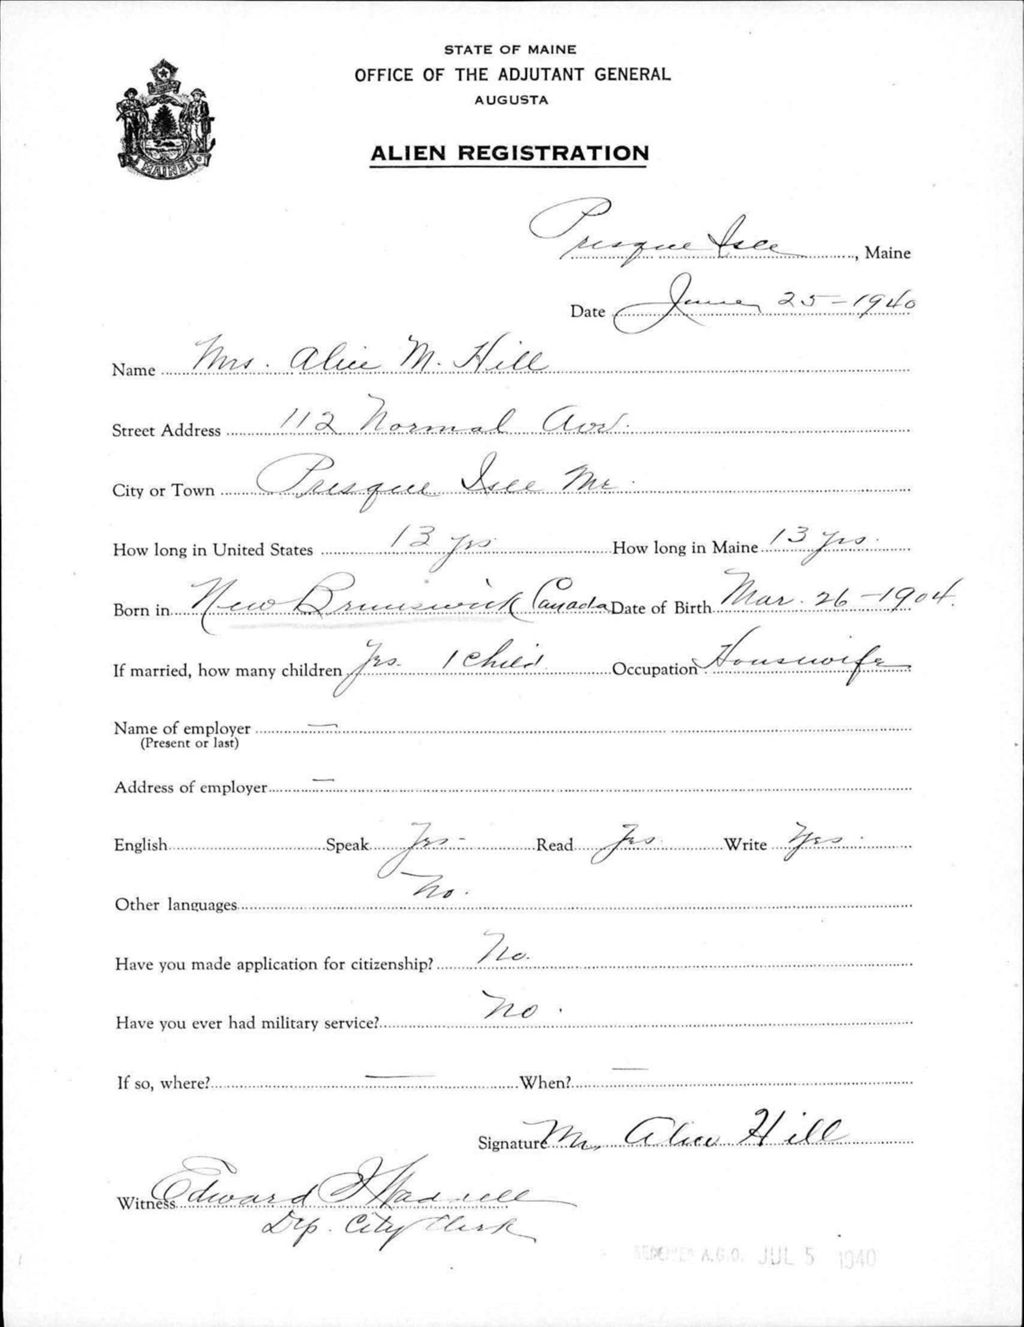 STATE OF MAINE
OFFICE OF THE ADJUTANT GENERAL
AUGUSTA
ALIEN REGISTRATION
MAINE
Presque Isle, Maine
Date June 25-1940
Name Mrs. Alice M. Hill
Street Address 112 Normal Ave.
City or Town Presque Isle Me.
How long in United States 13 yrs How long in Maine 13 yrs.
Born in New Brunswick Canada Date of Birth Mar. 26-1904.
If married, how many children Yes. 1 child Occupation Housewife
Name of employer —
(Present or last)
Address of employer —
English Speak Yes- Read Yes Write Yes.
Other languages No.
Have you made application for citizenship? No.
Have you ever had military service? No.
If so, where? — When? —
Signature Mrs Alice Hill
Witness Edward
Dep. City Clerk
A.G.O. JUL 5 1940